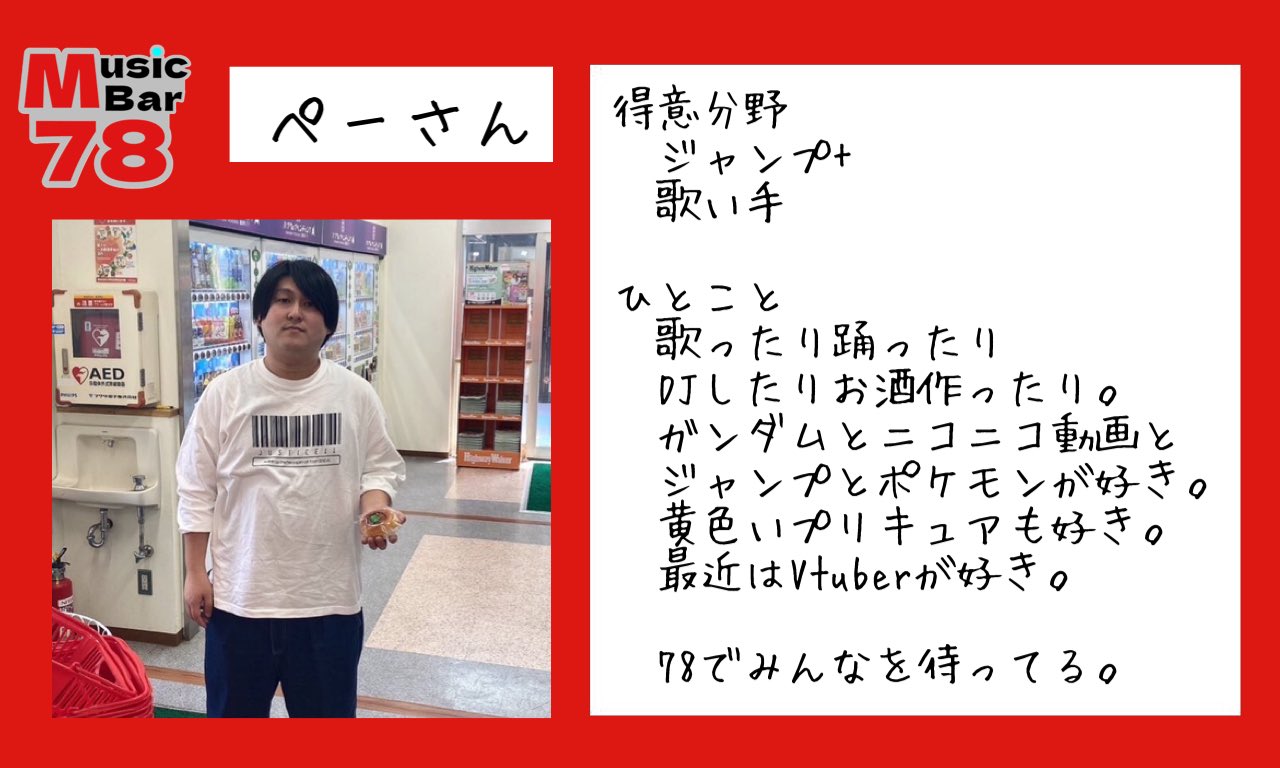 Music
Bar
78
ぺーさん
得意分野
ジャンプ+
歌い手
ひとこと
歌ったり踊ったり
DJしたりお酒作ったり。
ガンダムとニコニコ動画と
ジャンプとポケモンが好き。
黄色いプリキュアも好き。
最近はVtuberが好き。
78でみんなを待ってる。
AED
Highway Walker
Highway Walker